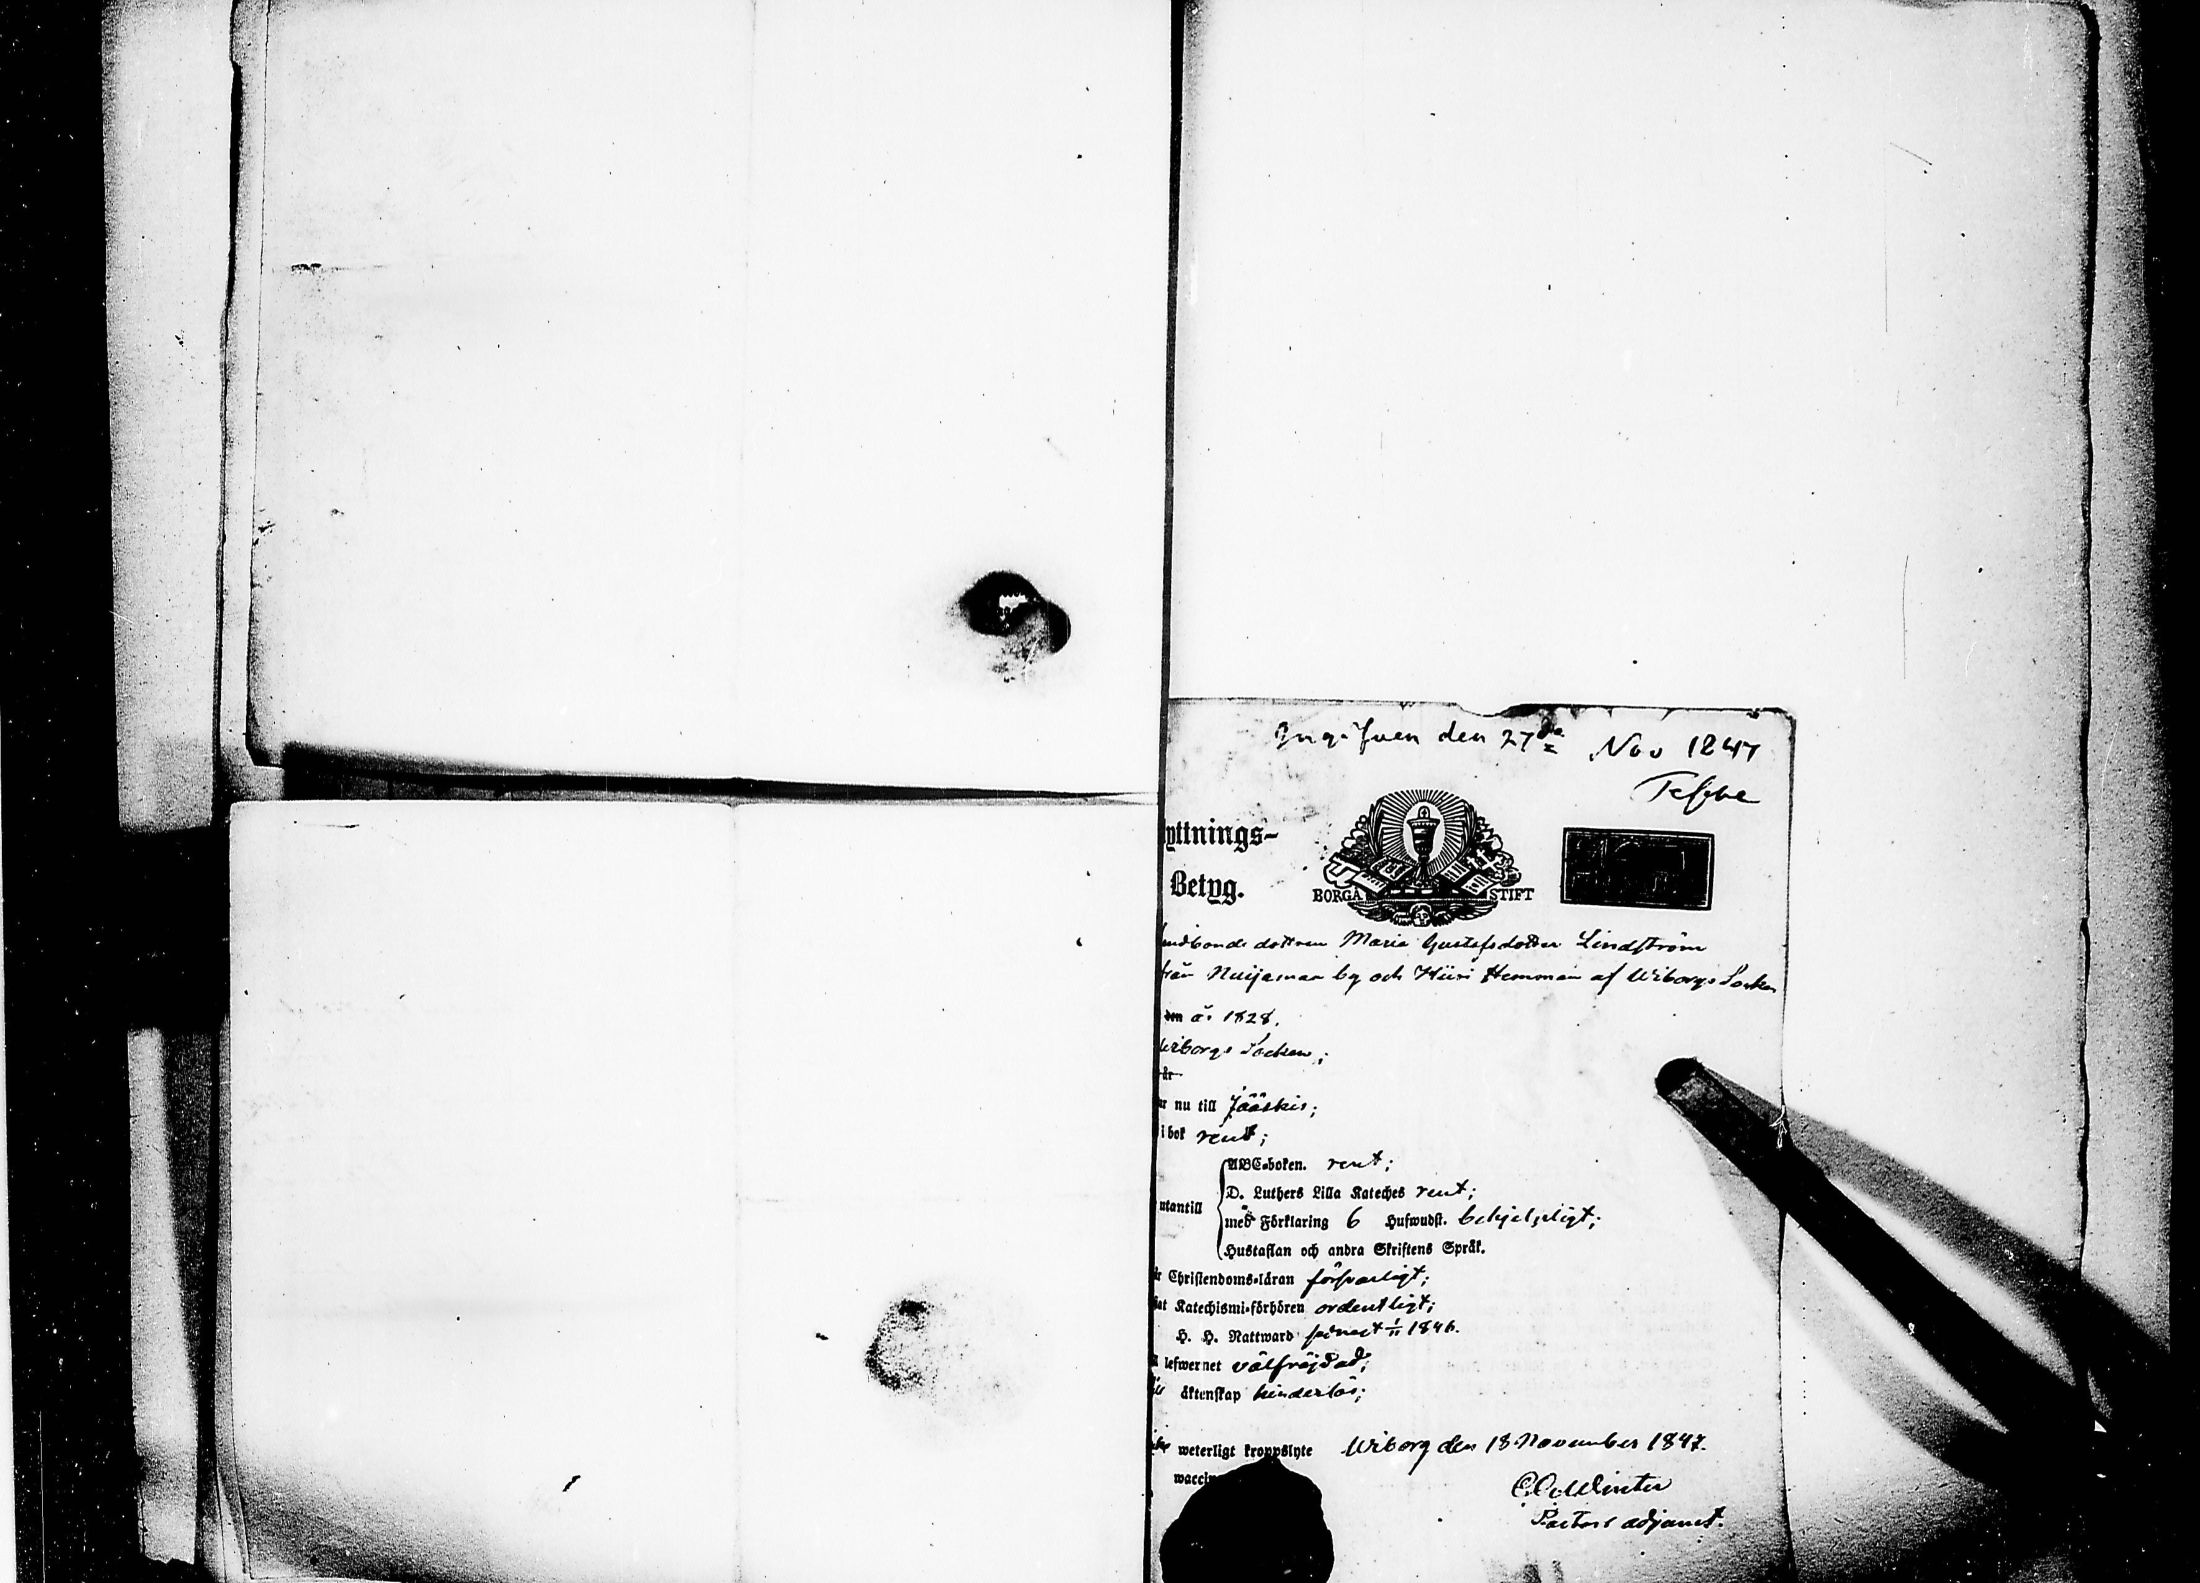 Ingifven den 27de Nov 1847
yttnings-
Betyg.
BORGÅ STIFT
ndbonde dottren Maria Gustafsdotter Lindström
från Nuijamaa by och Hiiri Hemman af Wiborgs Socken
den år 1828.
Wiborgs Socken;
år
ar nu till Jääskis;
i bok rent;
ABC-boken. rent;
D. Luthers Lilla Kateches rent;
utantill
med Förklaring 6 Hufwudst. behjelpligt;
Hustaflan och andra Skriftens Språk.
Christendoms-läran försvarligt;
at Katechismi-förhören ordentligt;
H. H. Nattward senast 1/11 1846.
lefwernet välfräjdad;
äktenskap hinderlös;
weterligt kroppslyte Wiborg den 18 November 1847.
waccin
Winter
Pastors adjunct.